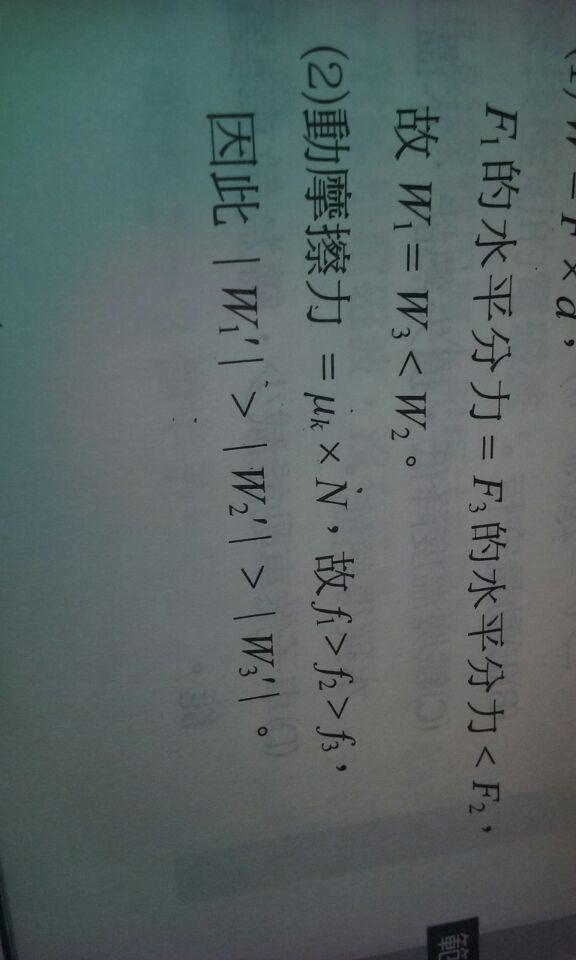 (1) W = F × d，
F₁的水平分力 = F₃的水平分力 < F₂，
故 W₁ = W₃ < W₂。
(2)動摩擦力 = μₖ × N，故 f₁ > f₂ > f₃，
因此 | W₁′| > | W₂′| > | W₃′|。
範